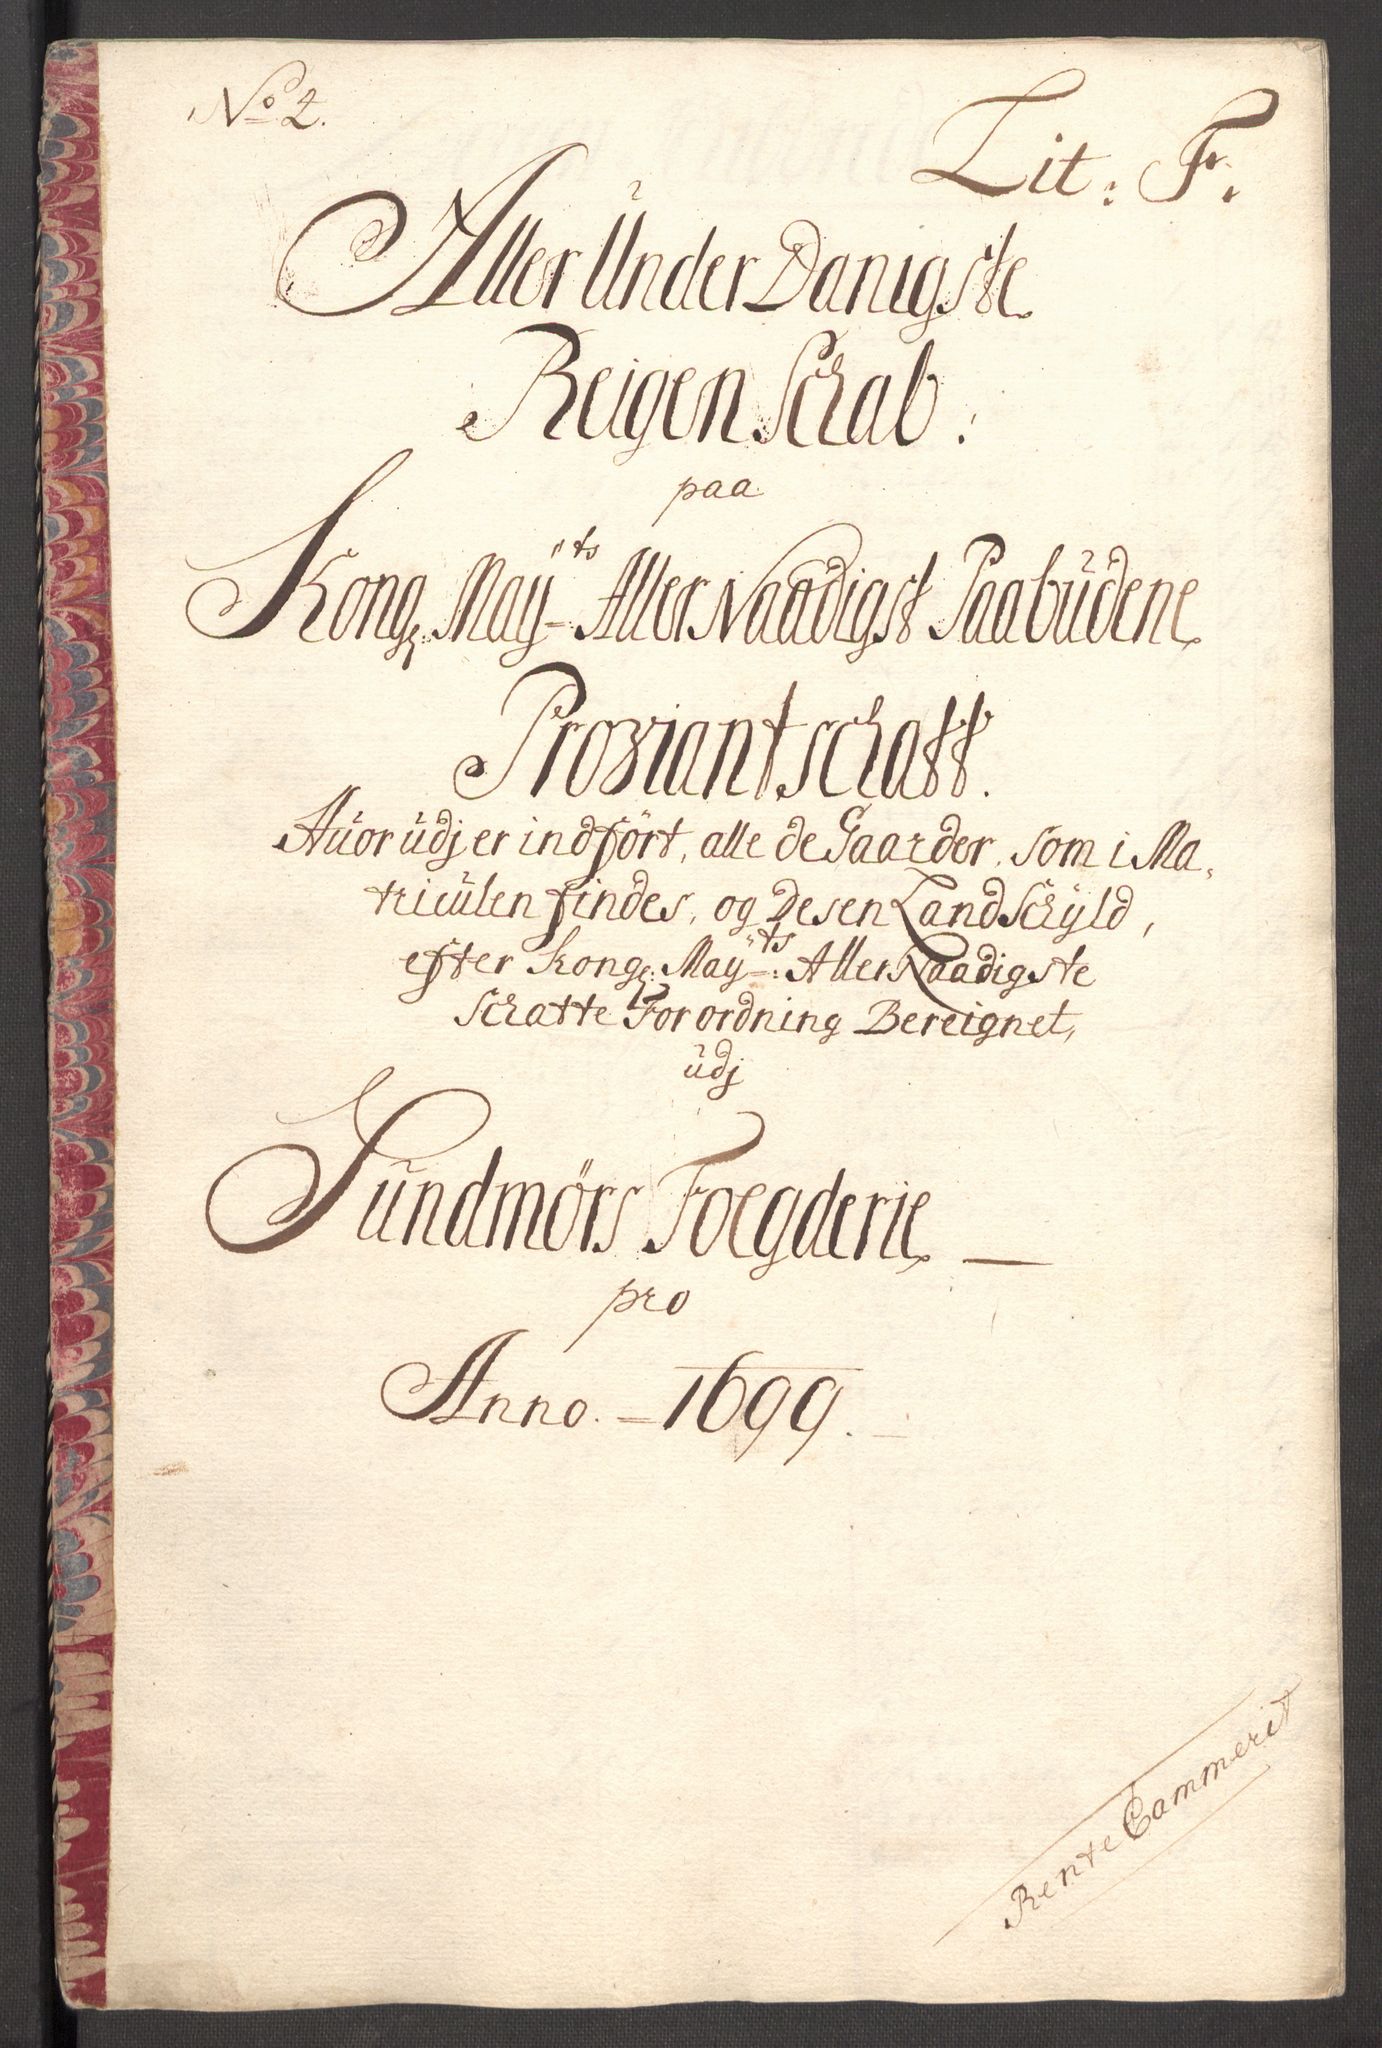 No 2.
Lit: F.
Aller ünder Danigste
Reigen Schab:
paa
Kong: Maÿts Aller Naadigst Paabüdene
Proviant schatt.
Huor üdj er indført, alle de Gaarder, som i Ma,
tricülen findes, og Desen Land Schÿld,
efter Kong: Maÿts: Aller Naadigste
Schatte Forordning Bereignet,
üdj
Sündmörs Foegderie
pro
Anno. 1699.
Rente Cammerit